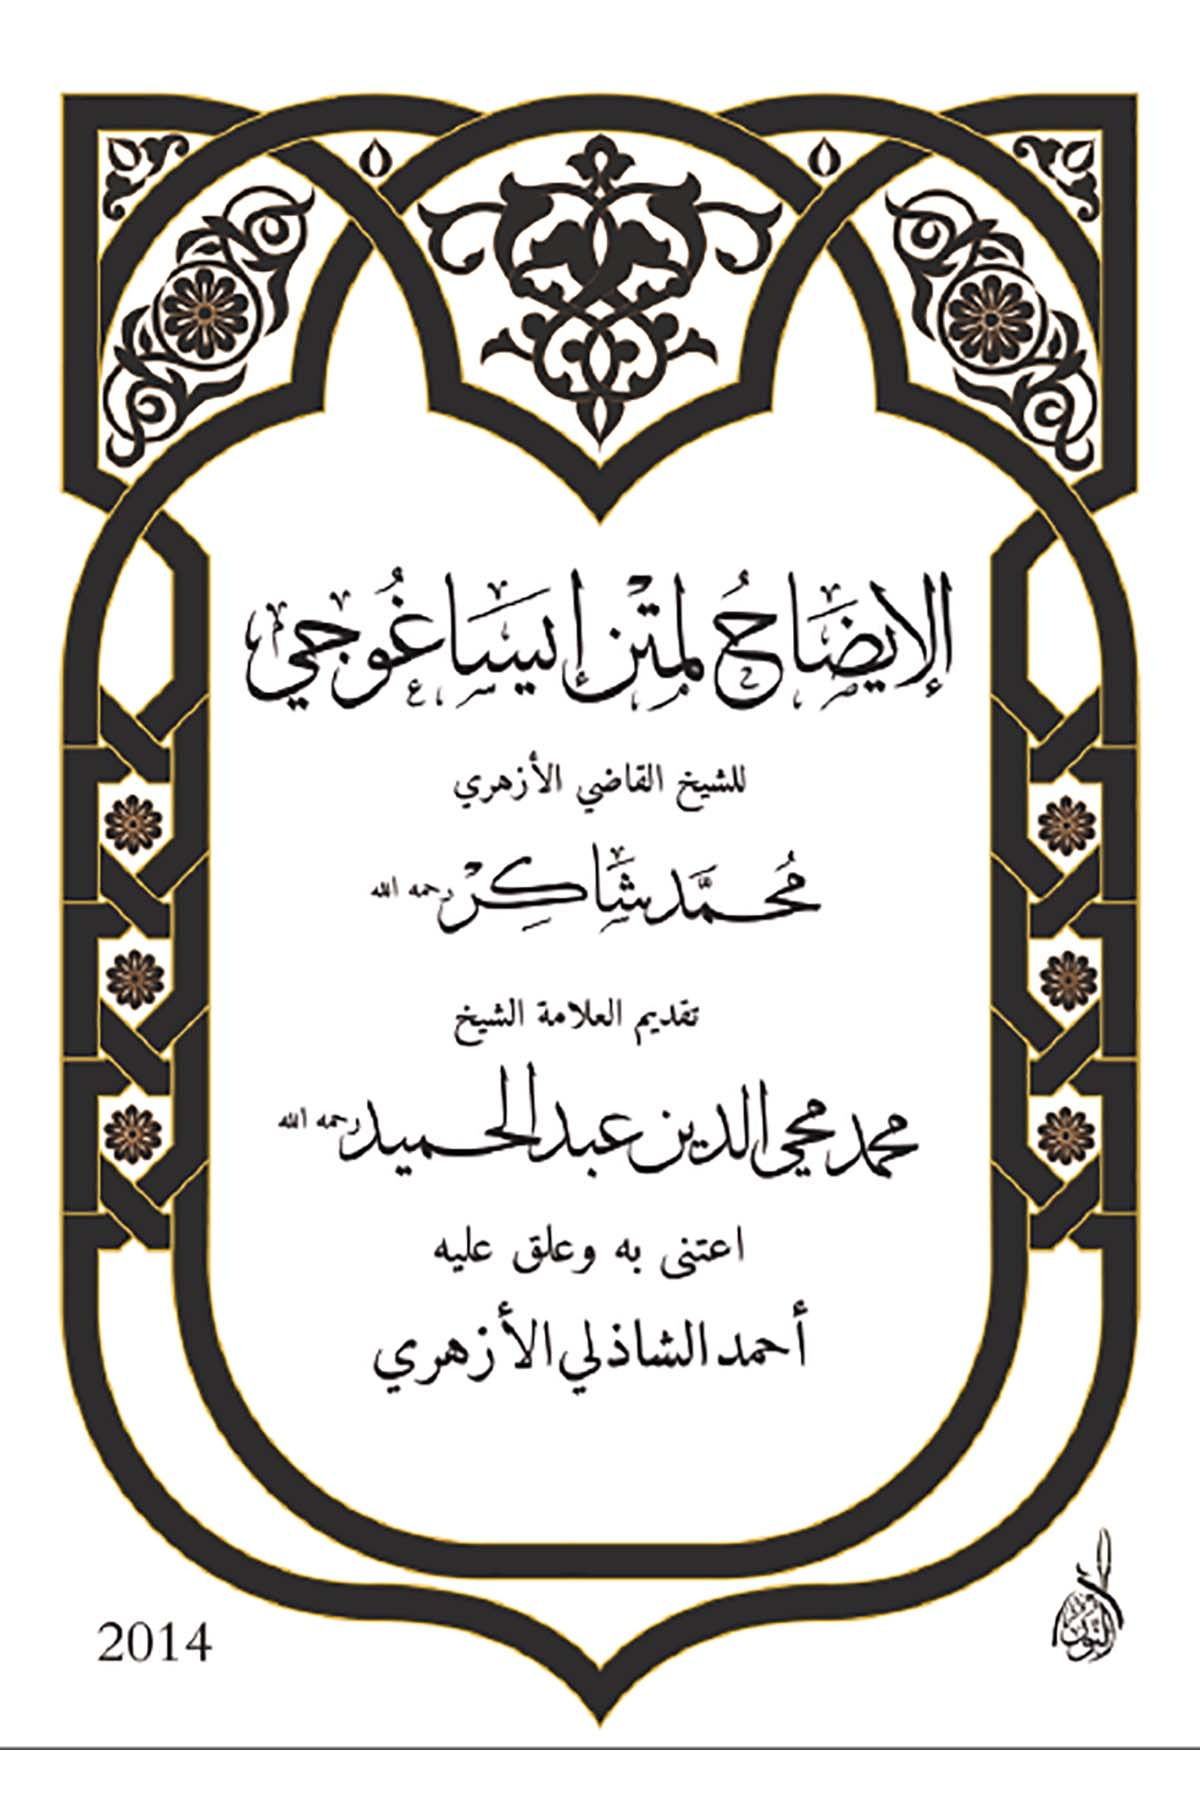 الإيضَاحُ لِمَتْنِ إِيسَاغُوجِي
للشيخ القاضي الأزهري
مُحَمَّد شَاكِرْ رحمه الله
تقديم العلامة الشيخ
محمد محيي الدين عبد الحميد رحمه الله
اعتنى به وعلق عليه
أحمد الشاذلي الأزهري
2014